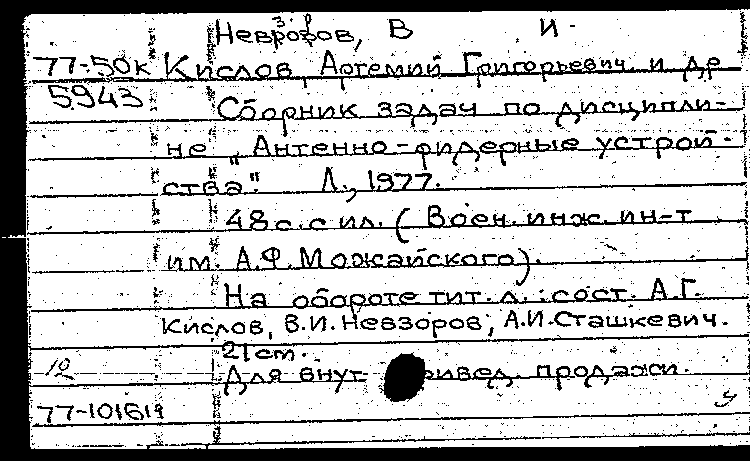 Невзоров, В И.
77-50к Кислов, Артемий Григорьевич и др
5943 Сборник задач по дисципли-
не „Антенно-фидерные устрой-
ства". Л., 1977.
48 с. с ил. (Воен. инж. ин-т
им. А.Ф.Можайского).
На обороте тит. л.: сост. А.Г.
Кислов, В.И.Невзоров, А.И.Сташкевич.
21 cm.
Для внут продажи.
77-101611